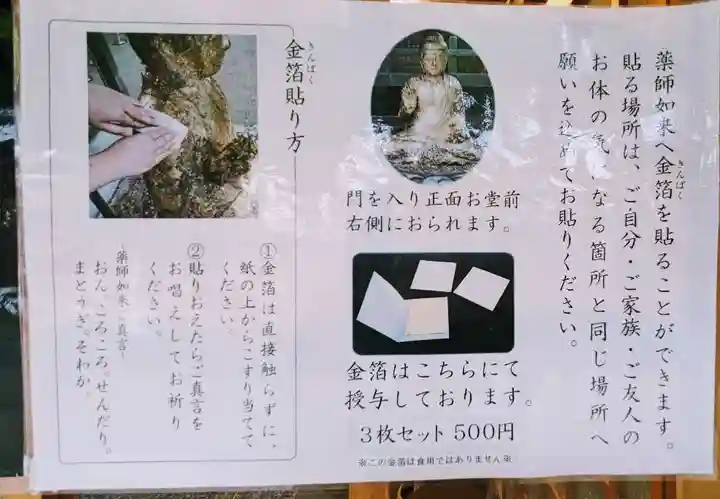 薬師如来へ金箔を貼ることができます。
きんぱく
貼る場所は、ご自分・ご家族・ご友人の
お体の気になる箇所と同じ場所へ
願いを込めてお貼りください。
門を入り正面お堂前
右側におられます。
金箔はこちらにて
授与しております。
3枚セット 500円
※この金箔は食用ではありません※
金箔貼り方
きんぱく
①金箔は直接触らずに、
紙の上からこすり当てて
ください。
②貼りおえたらご真言を
お唱えしてお祈り
ください。
-薬師如来ご真言-
おん。ころころ。せんだり。
まとうぎ。そわか。